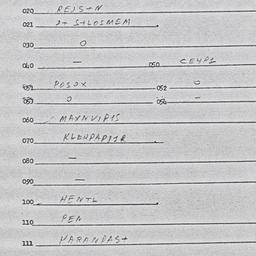 020 REJS+N
021 2+ S+LOSMEM
030 O
040 — 050 CE4P1
051 POSOX 052 O
053 O 054 —
060 MAXNVIR1S
070
080 —
090 —
100 HENTL
110 PEN
111 MARANPAS+